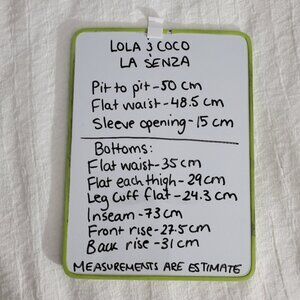 LOLA & COCO
LA SENZA
Pit to pit - 50 cm
Flat waist - 48.5 cm
Sleeve opening - 15 cm
Bottoms:
Flat waist - 35 cm
Flat each thigh - 29 cm
Leg Cuff flat - 24.3 cm
Inseam - 73 cm
Front rise - 27.5 cm
Back rise - 31 cm
MEASUREMENTS ARE ESTIMATE